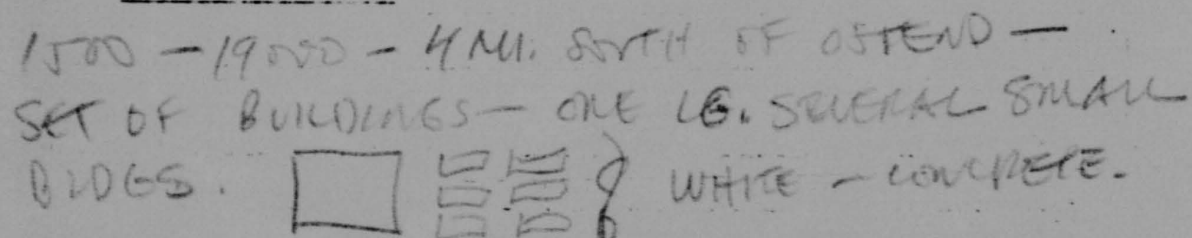 1500 - 19000 - 4 MI. SOUTH OF OSTEND -
SET OF BUILDINGS - ONE LG. SEVERAL SMALL
BLDGS. WHITE - CONCRETE.